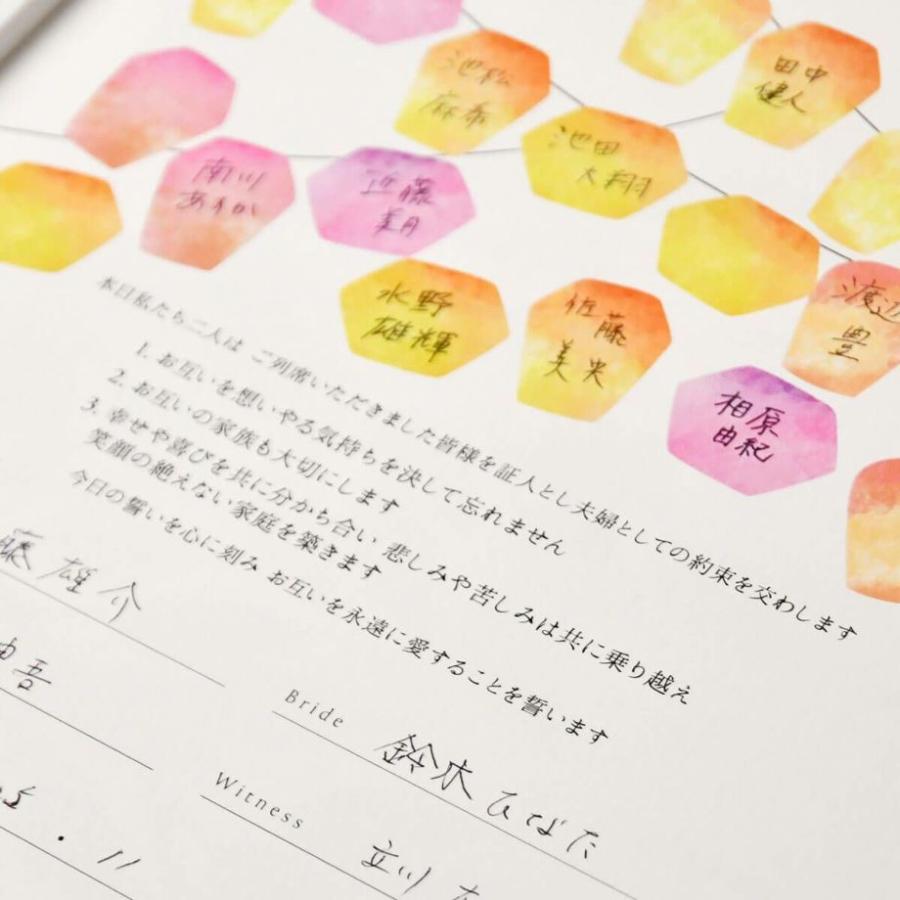 池松
麻希
田中
健人
池田
大翔
南川
あすか
近藤
美月
水野
雄輝
佐藤
美央
渡辺
豊
相原
由紀
本日私たち二人は ご列席いただきました皆様を証人とし夫婦としての約束を交わします
1. お互いを想いやる気持ちを決して忘れません
2. お互いの家族も大切にします
3. 幸せや喜びを共に分かち合い 悲しみや苦しみは共に乗り越え
笑顔の絶えない家庭を築きます
今日の誓いを心に刻み お互いを永遠に愛することを誓います
藤 雄介
Bride 鈴木 ひなた
吾
Witness 立川
. 11